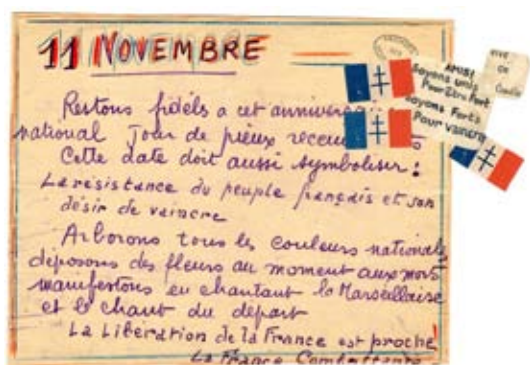 11 NOVEMBRE
Restons fidèls a cet anniversai
national Jour de pieux receui
Cette date doit aussi symboliser :
La résistance du peuple français et son
désir de vaincre
Arborons tous les couleurs nationale
déposons des fleurs au moment aux morts
manifestons en chantant la Marseillaise
et le chant du départ
La Libération de la France est proche
La France Combattante
AMIS!
Soyons unis
Pour être Fort
Soyons Forts
Pour vaincre
VIVE
DE
Gaulle